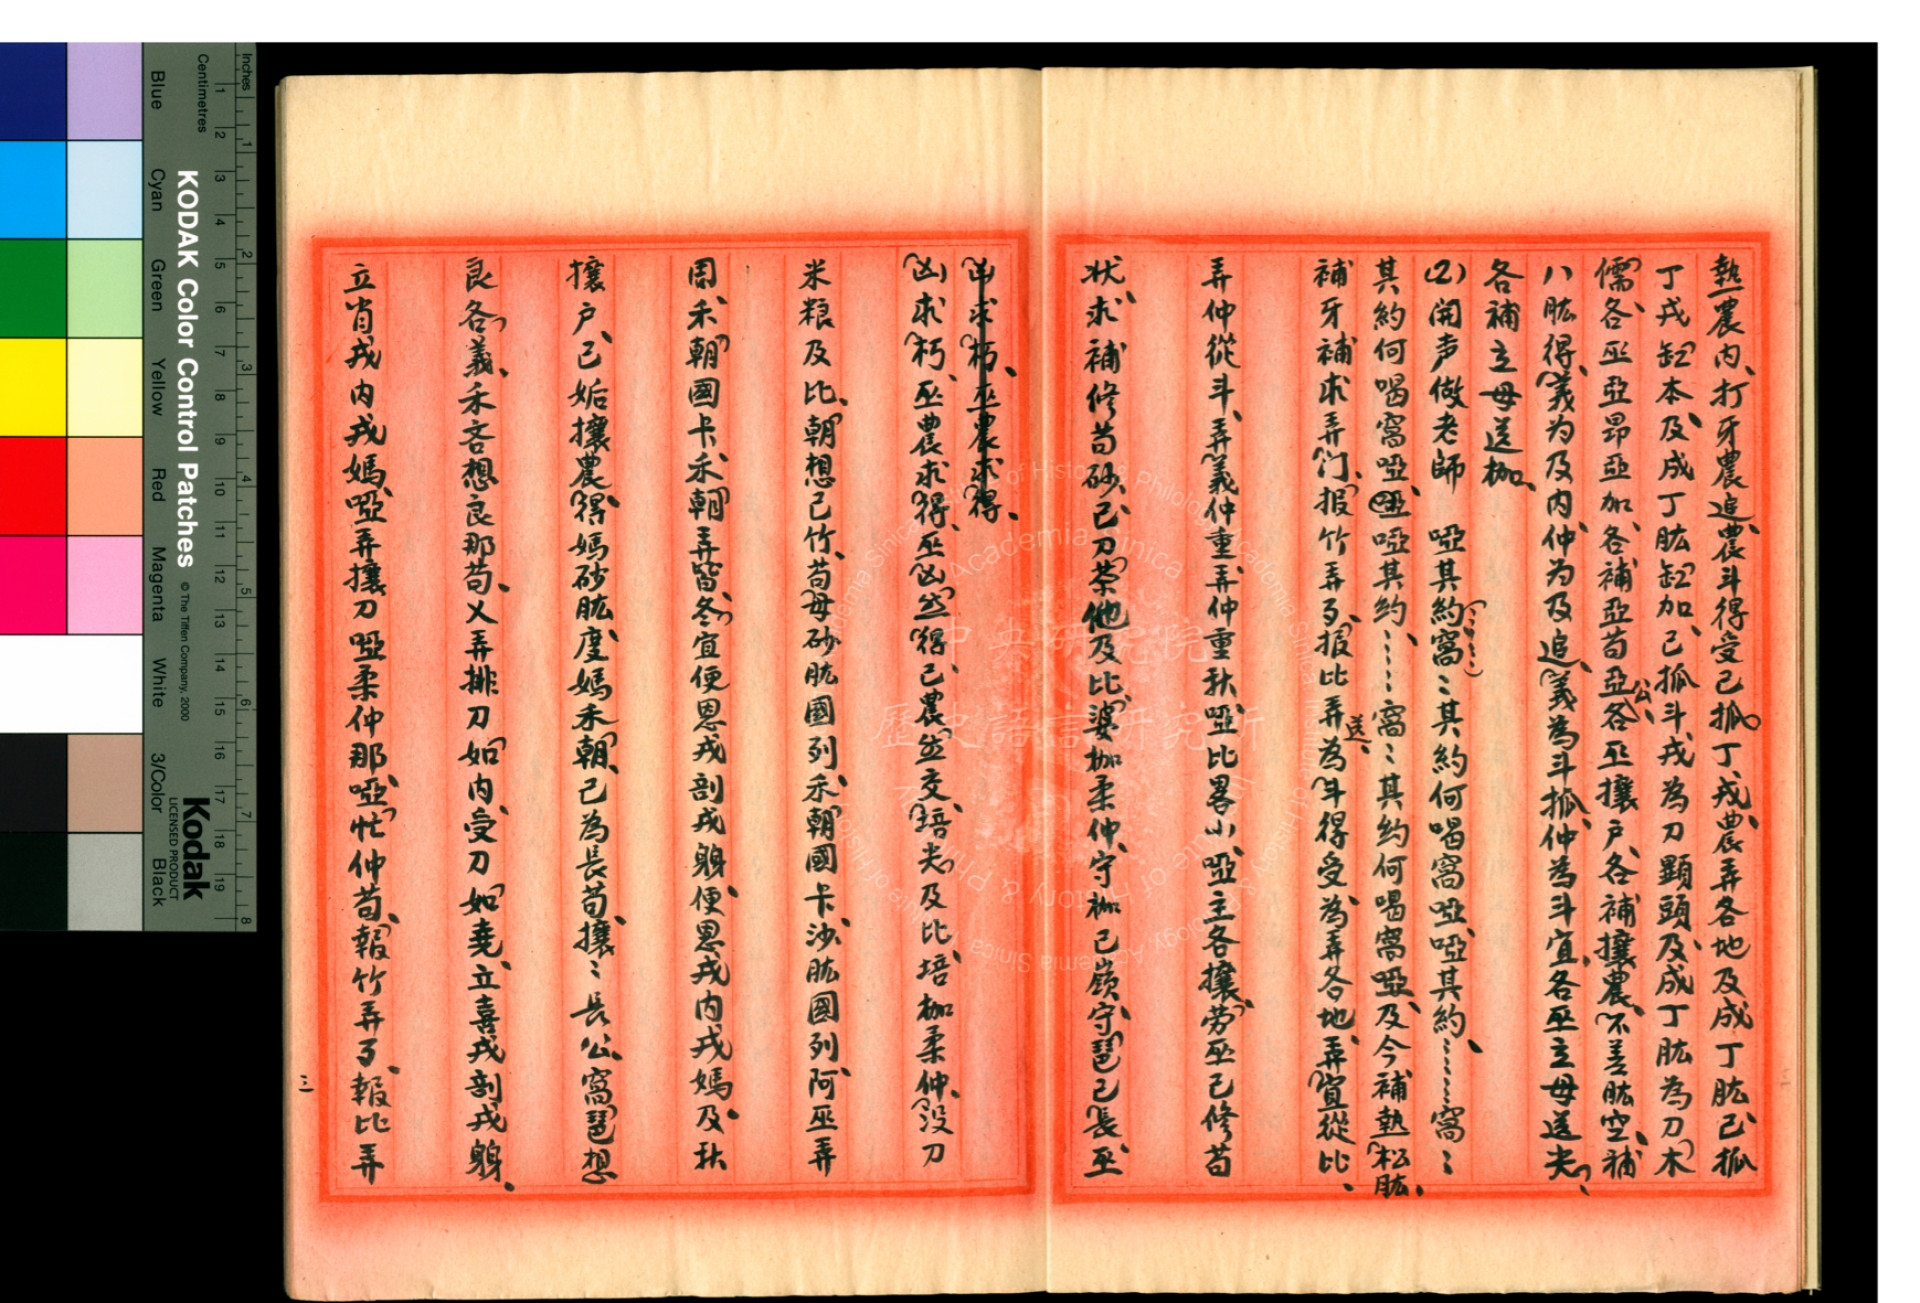 熱農内、打牙農追、農斗得受己抓丁戎、農弄各地及成丁肱己抓
丁戎缸本及成丁肱缸加、己抓斗戎為刀顯頭及成丁肱為刀木
儒各巫亞昂亞加、各補亞苟亞各巫攘户、各補攘農不善肱空補
八肱得義为及内仲为及追、義為斗抓仲為斗宜各巫立母送光
公
各補立母送枷、
(2)開声做老師 啞其約窩ミ其約何喝窩啞啞其約、窩ミ
其約何喝窩啞啞啞其約、窩ミ其約何喝窩啞、及今補熱松肱、
補牙補求弄门、报竹弄了、报比弄為斗得受為弄各地弄宜從比、
送
弄仲從斗、弄義仲重弄仲重秋啞比畧小、啞主各攘劳巫己修苟
状求補修苟砂己刀茶他及比婆枷柔仲守枷己嶺守琶己長巫
凶求朽、巫農求得、
凶求朽、巫農求得、巫凶然得己農然交培光及比培枷柔仲、没刀
米粮及比、朝想己竹苟母砂肱國列禾朝國卡沙肱國列阿巫弄
周禾朝國卡禾朝弄皆冬宜便恩戎剖戎躬便恩戎内戎媽及秋
攘户己姤攘農得媽砂肱度媽禾朝己為長苟攘ミ長公窩琶想
良各義、禾吝想良那苟、义弄排刀如内受刀如堯立喜戎剖戎躬、
立肖戎内戎媽啞弄攘刀啞柔仲那啞忙仲苟報竹弄了、報比弄
三
KODAK Color Control Patches
© The Tiffen Company, 2000
Kodak
LICENSED PRODUCT
Inches
Centimetres
Blue
Cyan
Green
Yellow
Red
Magenta
White
3/Color
Black
中央研究院
歷史語言研究所
Academia Sinica
Institute of History & Philology, Academia Sinica